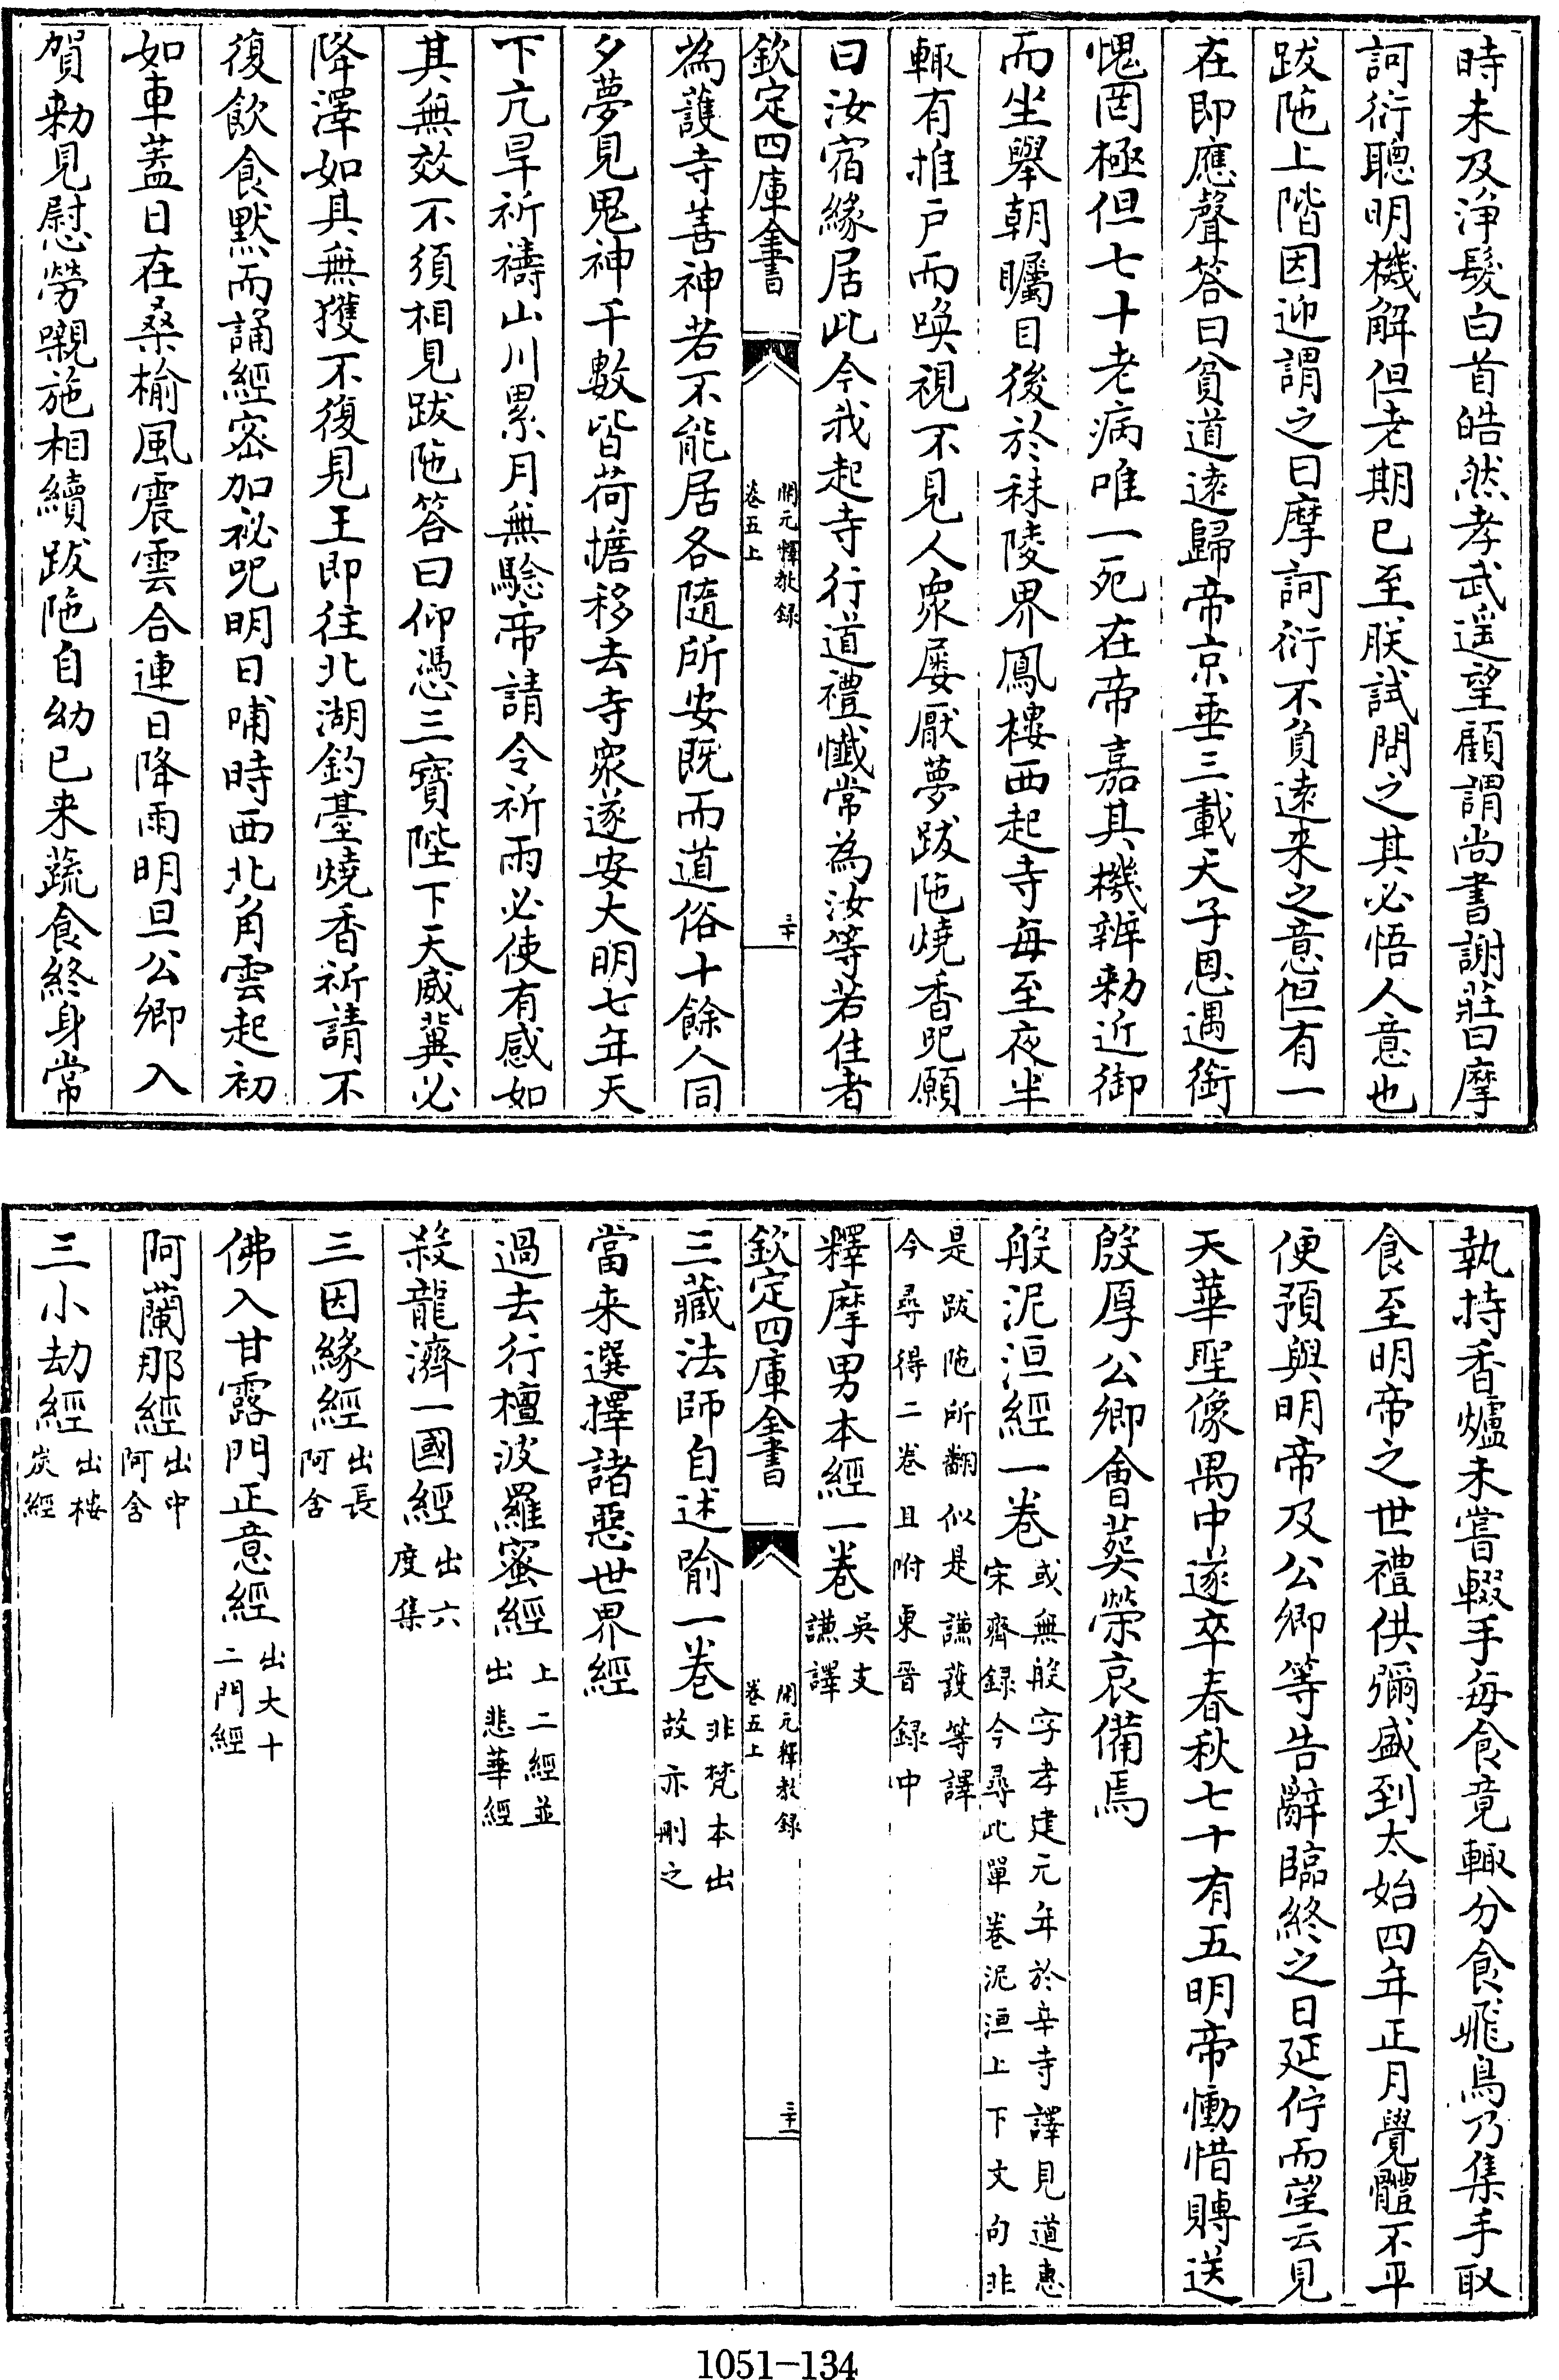 時未及淨髮白首皓然孝武遥望顧謂尚書謝莊曰摩
訶衍聰明機解但老期已至朕試問之其必悟人意也
跋陁上階因迎謂之曰摩訶衍不負逺来之意但有一
在即應聲答曰貧道逺歸帝京垂三載天子恩遇銜
愧罔極但七十老病唯一死在帝嘉其機辨勅近御
而坐舉朝矚目後於秣陵界鳳樓西起寺每至夜半
輙有推户而喚視不見人衆屢厭夢跋陁燒香呪願
曰汝宿緣居此今我起寺行道禮懺常為汝等若住者
欽定四庫全書
開元釋教録
卷五上
三十
為護寺善神若不能居各隨所安既而道俗十餘人同
夕夢見鬼神千數皆荷擔移去寺衆遂安大明七年天
下亢旱祈禱山川累月無驗帝請令祈雨必使有感如
其無效不須相見跋陁答曰仰憑三寶陛下天威冀必
降澤如其無獲不復見王即往北湖釣臺燒香祈請不
復飲食默而誦經密加祕呪明日晡時西北角雲起初
如車蓋日在桑榆風震雲合連日降雨明旦公卿入
賀勅見慰勞嚫施相續跋陁自幼已来蔬食終身常
執持香爐未嘗輟手每食竟輙分食飛鳥乃集手取
食至明帝之世禮供彌盛到太始四年正月覺體不平
便預與明帝及公卿等告辭臨終之日延佇而望云見
天華聖像禺中遂卒春秋七十有五明帝慟惜賻送
殷厚公卿會葬榮哀備焉
般泥洹經一卷
或無般字孝建元年於辛寺譯見道惠
宋齊録今尋此單卷泥洹上下文句非
是跋陁所翻似是謙護等譯
今尋得二卷且附東晋録中
釋摩男本經一卷
吳支
謙譯
欽定四庫全書
開元釋教録
卷五上
三十一
三藏法師自述喻一卷
非梵本出
故亦刪之
當来選擇諸惡世界經
過去行檀波羅蜜經
上二經並
出悲華經
殺龍濟一國經
出六
度集
三因緣經
出長
阿含
佛入甘露門正意經
出大十
二門經
阿蘭那經
出中
阿含
三小劫經
出樓
炭經
1051-134